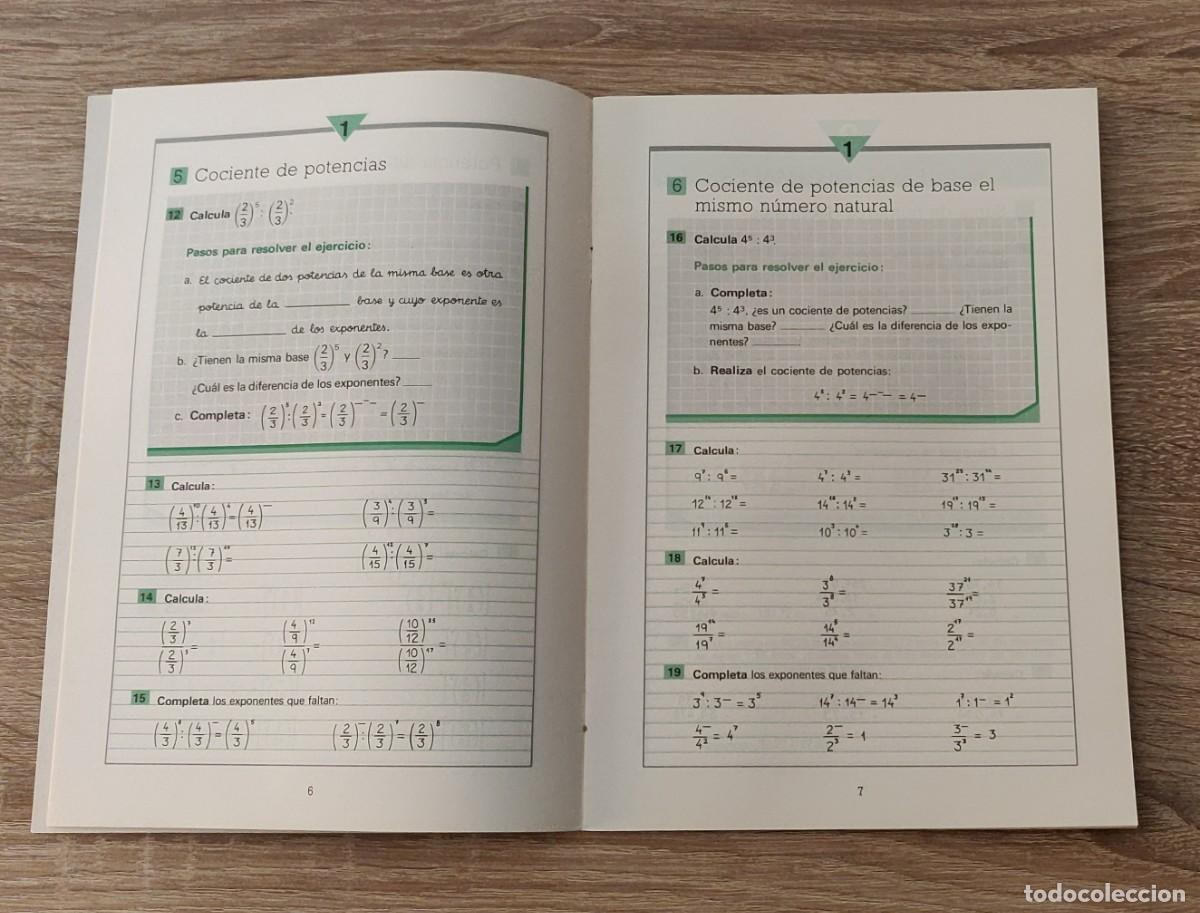 1
5 Cociente de potencias
12 Calcula (2/3)⁵ : (2/3)².
Pasos para resolver el ejercicio:
a. El cociente de dos potencias de la misma base es otra
potencia de la ______ base y cuyo exponente es
la ______ de los exponentes.
b. ¿Tienen la misma base (2/3)⁵ y (2/3)²? ____
¿Cuál es la diferencia de los exponentes? ____
c. Completa: (2/3)⁵ : (2/3)² = (2/3)⁻ ⁻ ⁻ = (2/3)⁻
13 Calcula:
(4/13)¹⁰ : (4/13)⁴ = (4/13)⁻ (3/9)⁴ : (3/9)³ =
(7/3) : (7/3) = (4/15)¹² : (4/15)⁷ =
14 Calcula:
(2/3) / (2/3) = (4/9)¹² / (4/9)⁷ = (10/12)³⁵ / (10/12)¹⁷ =
15 Completa los exponentes que faltan:
(4/3) : (4/3)⁻ = (4/3)⁵ (2/3)⁻ : (2/3)⁷ = (2/3)⁸
6
1
6 Cociente de potencias de base el
mismo número natural
16 Calcula 4⁵ : 4³.
Pasos para resolver el ejercicio:
a. Completa:
4⁵ : 4³, ¿es un cociente de potencias? ______ ¿Tienen la
misma base? ______ ¿Cuál es la diferencia de los expo-
nentes? ______
b. Realiza el cociente de potencias:
4⁵ : 4³ = 4⁻ ⁻ ⁻ = 4⁻
17 Calcula:
9⁷ : 9⁶ = 4⁷ : 4² = 31²⁵ : 31¹⁴ =
12¹⁴ : 12¹² = 14¹⁸ : 14² = 19¹⁷ : 19¹³ =
11⁹ : 11⁶ = 10⁷ : 10⁴ = 3¹⁸ : 3 =
18 Calcula:
4⁷/4⁵ = 3⁶/3² = 37²¹/37¹⁹ =
19¹⁴/19⁷ = 14⁵/14⁴ = 2¹⁷/2¹¹ =
19 Completa los exponentes que faltan:
3⁹ : 3⁻ = 3⁵ 14⁷ : 14⁻ = 14³ 1⁷ : 1⁻ = 1²
4⁻/4² = 4⁷ 2⁻/2⁵ = 1 3⁻/3³ = 3
7
todocoleccion